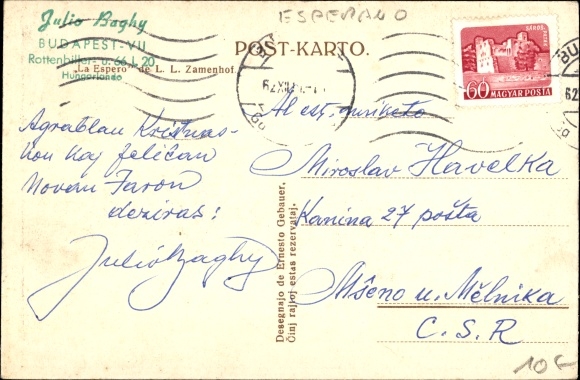 ESPERANO
Julio Baghy
BUDAPEST-VII
Rottenbiller-u. 66, I. 20
Hungarlando
POST-KARTO.
"La Espero" de L. L. Zamenhof.
SÁROS-
60 MAGYAR POSTA
62 XII
Agrablan Kristnas-
kon kaj feliĉan
Novan Jaron
deziras:
Julio Baghy
Desegnajo de Ernesto Gebauer.
Ĉiuj rajtoj estas rezervataj.
Al est. amiketo
Miroslav Havelka
Kanina 27 pošta
Mšeno u. Mělnika
C. S. R
10€